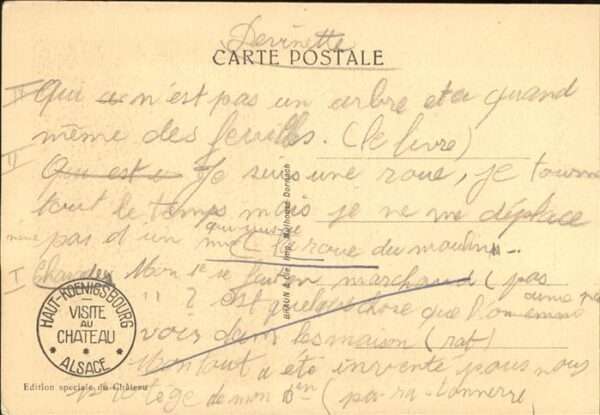 Devinette
CARTE POSTALE
II Qui a n'est pas un arbre et a quand
même des feuilles. (le livre)
II Qui est e Je suis une roue, je tourne
tout le temps mais je ne me déplace
même pas d'un m (la roue du moulin
I Charade Mon 1e se fait en marchand (pas
'' '' 2 est quelque chose que l'on aime
voir dans les maison (rat)
Mon tout a été inventé pour nous
protége de mon (pa-ra-tonnerre)
HAUT-KOENIGSBOURG
VISITE
AU
CHATEAU
ALSACE
Edition speciale du Château
BRAUN & Cie, Imp. Mulhouse-Dornach